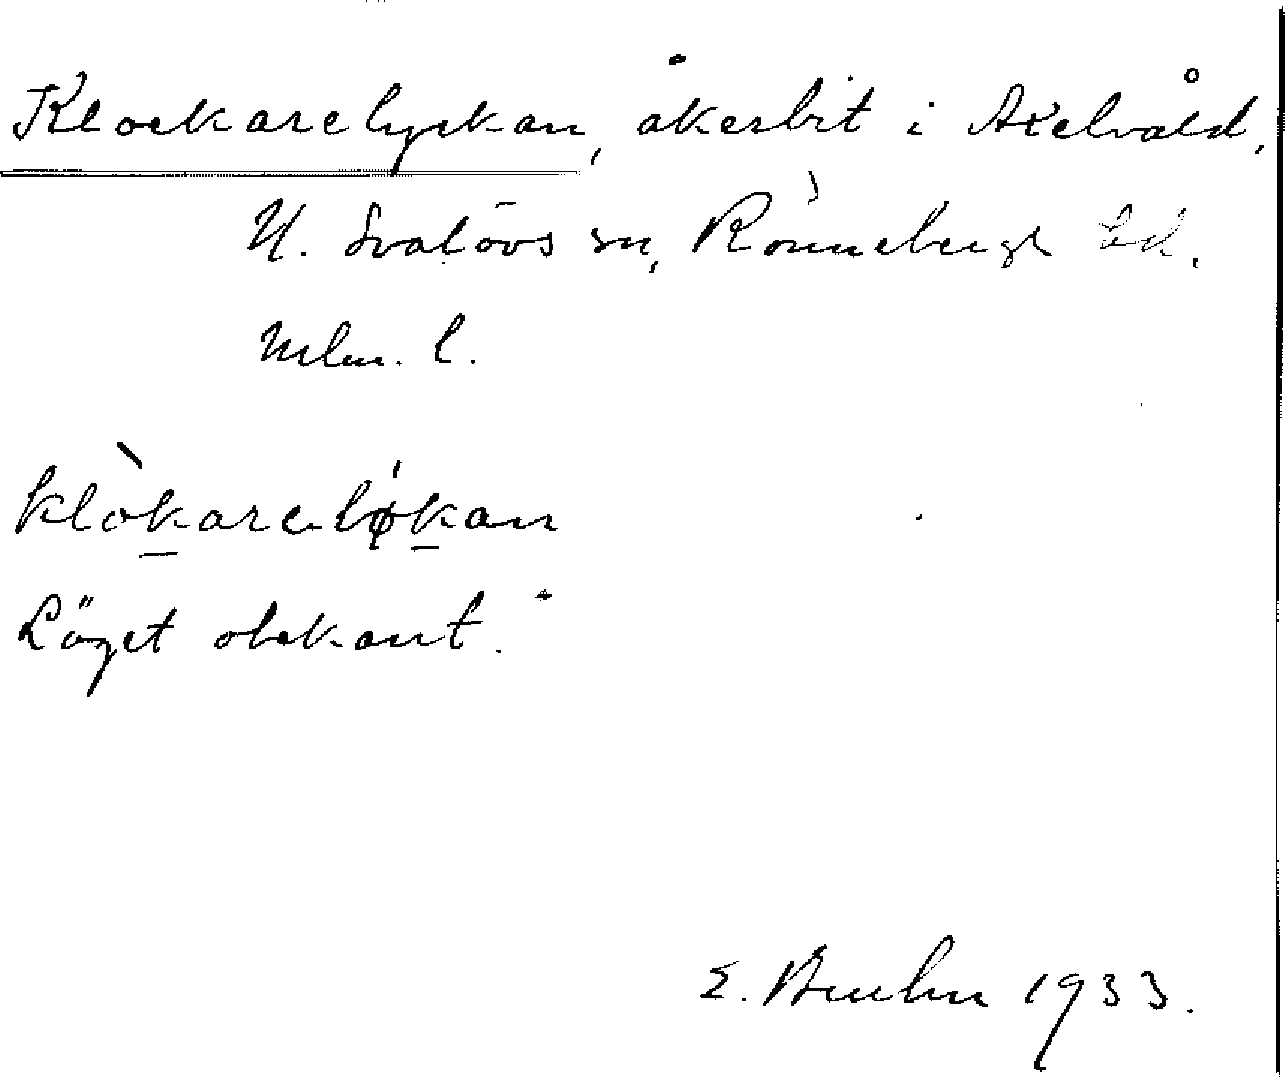 Klockarelyckan, åkerbit i Axelvåld,
N. Svalövs sn, Rönnebergs hd.
Mlm. l.
klòkareløkan
Läget obekant.
E. Bruhn 1933.